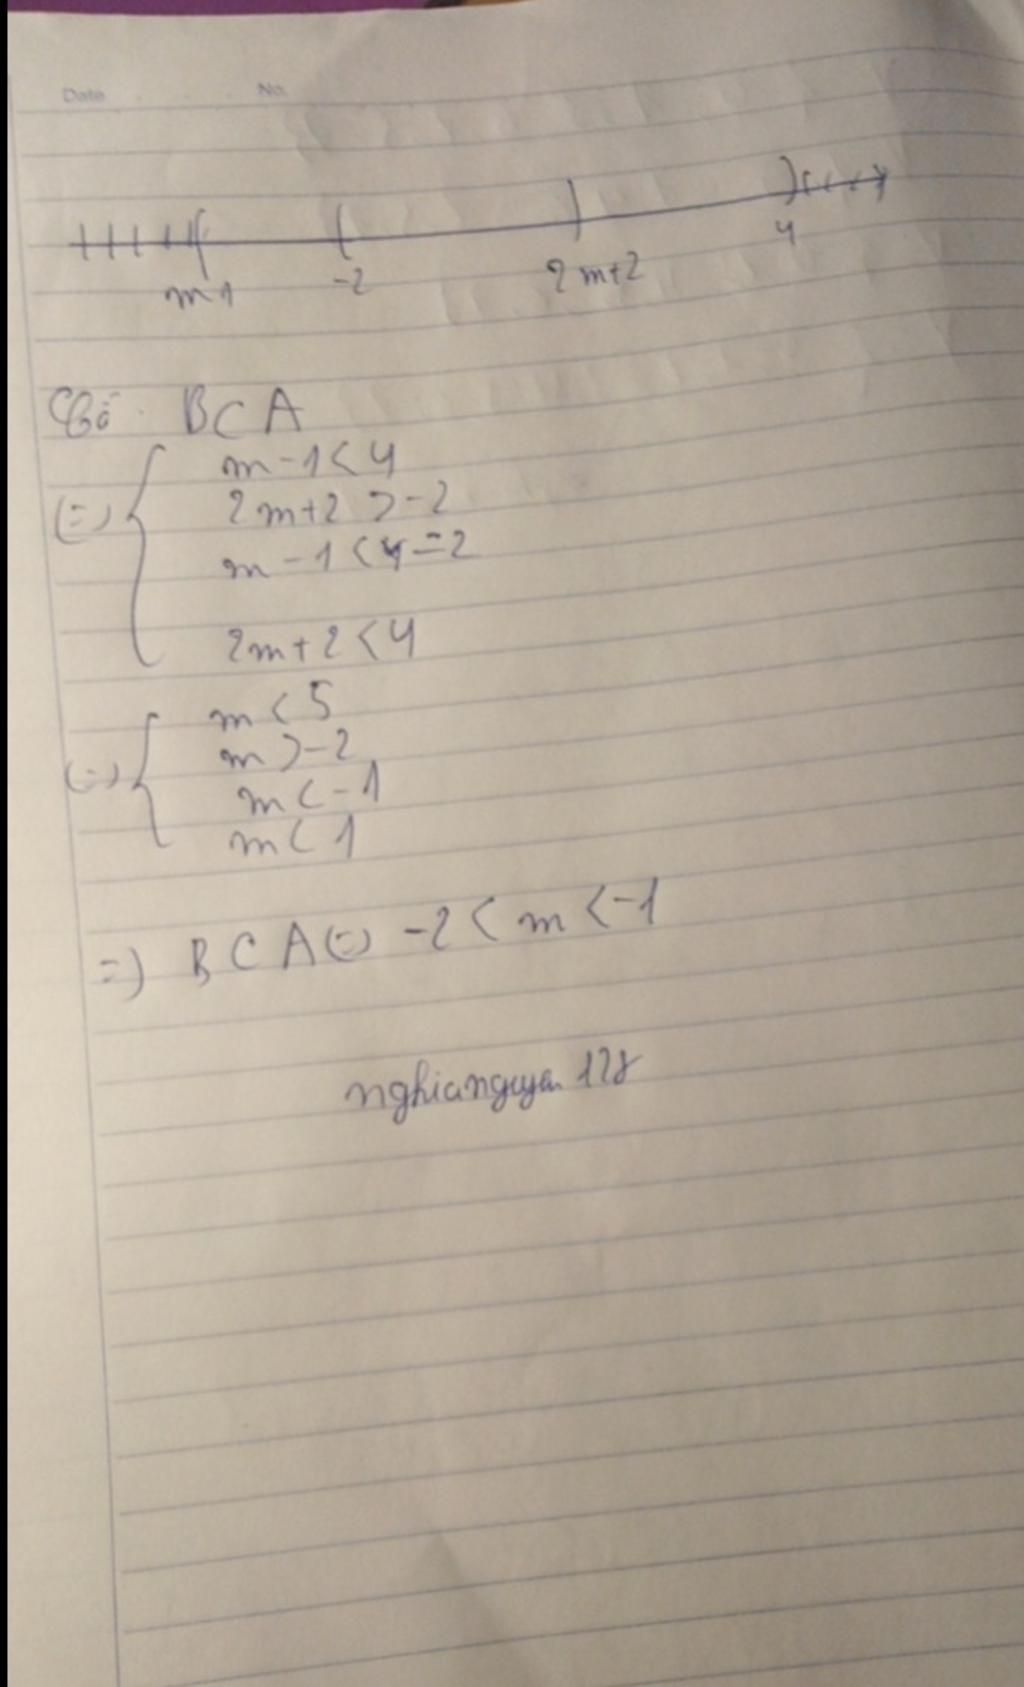 Date No.
m-1 -2 2m+2 4
Có B⊂A
(=) m-1<4
2m+2>-2
m-1<-2
2m+2<4
(=) m<5
m>-2
m<-1
m<1
=) B⊂A (=) -2<m<-1
nghianguyen 178